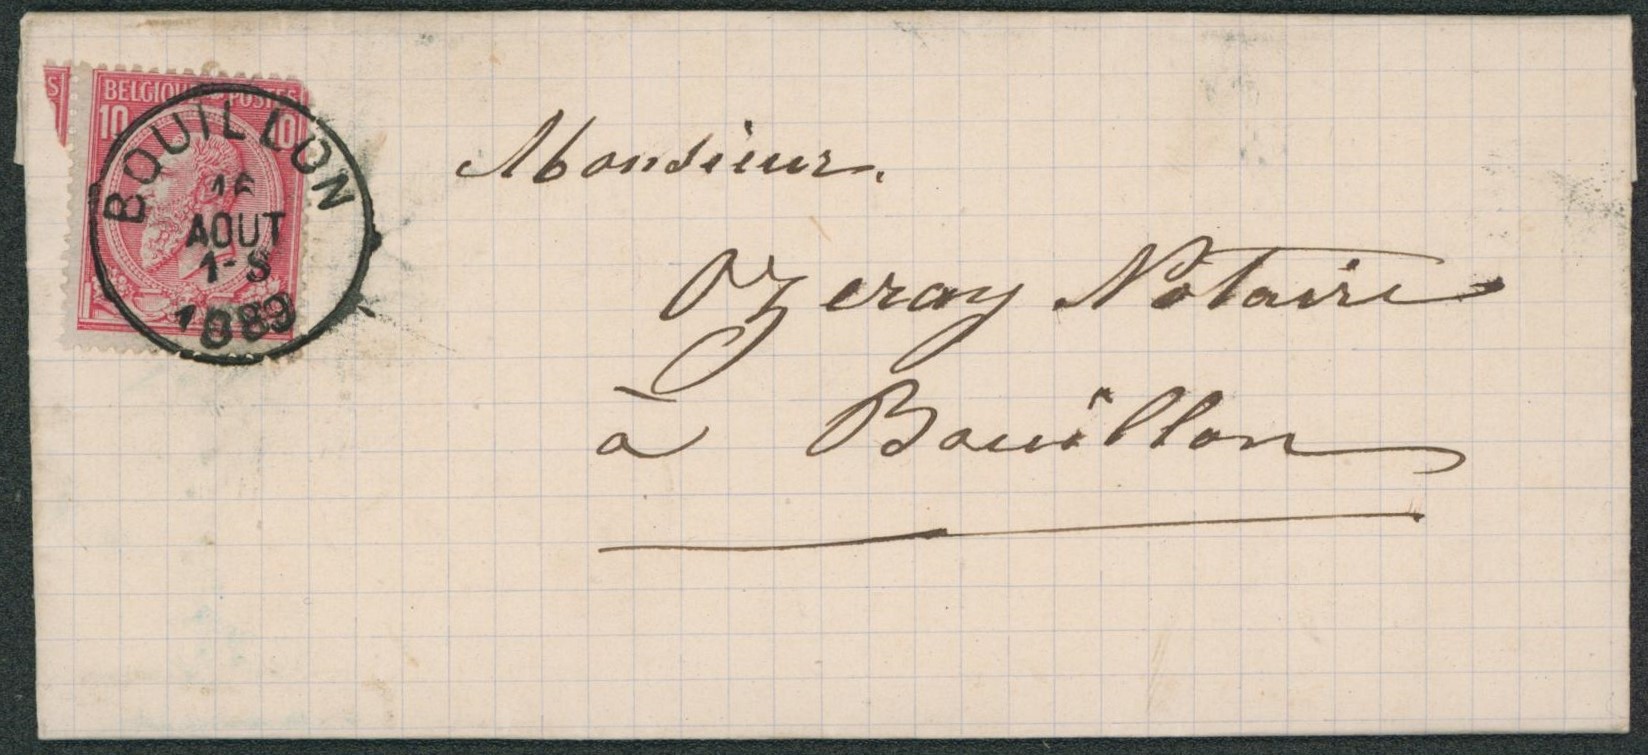 S
BELGIQUE POSTES
10 10
BOUILLON
AOUT
1-S
1889
Monsieur.
Ozeray Notaire
à Bouillon